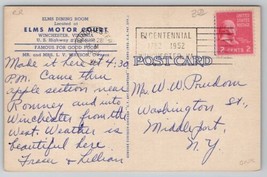 ELMS DINING ROOM
Located at
ELMS MOTOR COURT
WINCHESTER, VIRGINIA
U. S. Highway
FAMOUS FOR GOOD FOOD
MR. and MRS.
BICENTENNIAL
1752 1952
2 CENTS 2
POST CARD
Made it here at 4:30
P.M. Came thru
apple section near
Romney and into
Winchester from the
West. Weather is
beautiful here
Fraser & Lillian
Mr. W. W. Prudom
Washington St.,
Middleport,
N.Y.